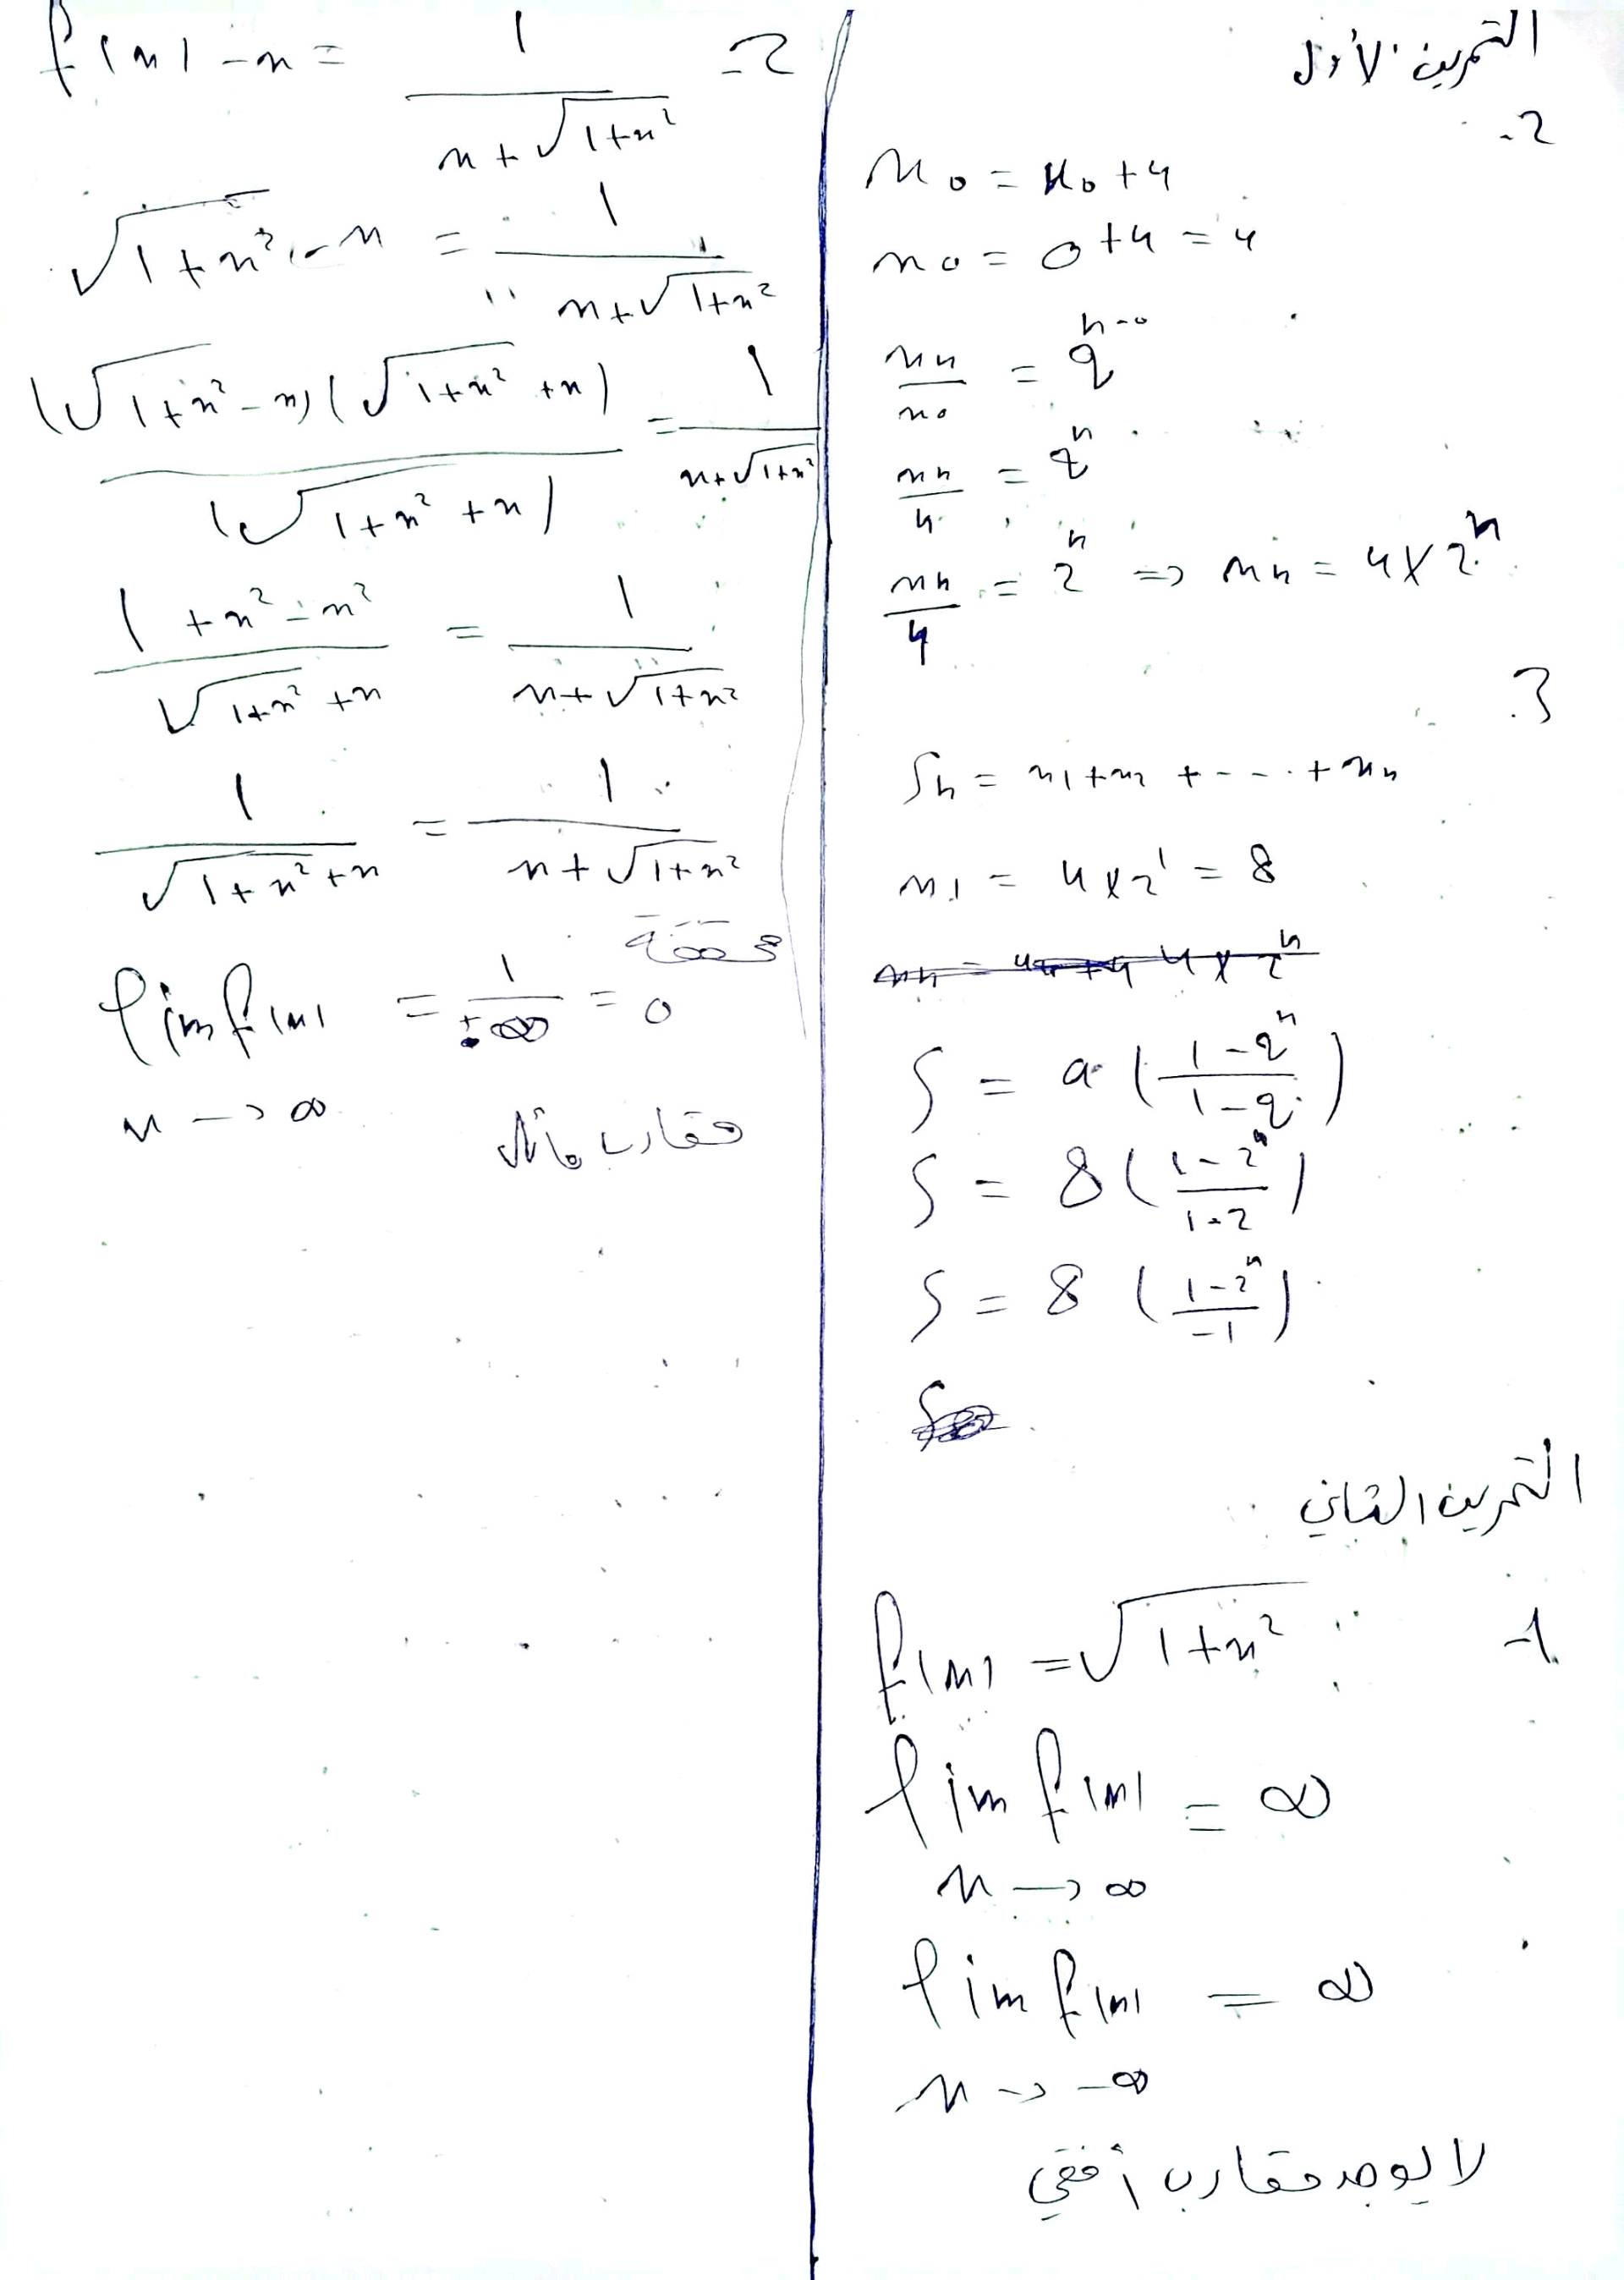 التمرين الأول
2-
x0 = u0 + 4
x0 = 0 + 4 = 4
xn/x0 = q^(n-0)
xn/4 = q^n
xn/4 = 2^n => xn = 4 × 2^n
3.
Sn = x1 + x2 + - - . + xn
x1 = 4 × 2^1 = 8
S = a ((1 - q^n)/(1 - q))
S = 8 ((1 - 2^n)/(1 - 2))
S = 8 ((1 - 2^n)/(-1))
التمرين الثاني
1-
f(x) = √(1 + x²)
lim f(x) = ∞
x → ∞
lim f(x) = ∞
x → -∞
لا يوجد مقارب أفقي
2-
f(x) - x = 1/(x + √(1 + x²))
√(1 + x²) - x = 1/(x + √(1 + x²))
(√(1 + x²) - x)(√(1 + x²) + x)/(√(1 + x²) + x) = 1/(x + √(1 + x²))
(1 + x² - x²)/(√(1 + x²) + x) = 1/(x + √(1 + x²))
1/(√(1 + x²) + x) = 1/(x + √(1 + x²))
محققة
lim f(x) = 1/(+∞) = 0
x → ∞
مقارب مائل